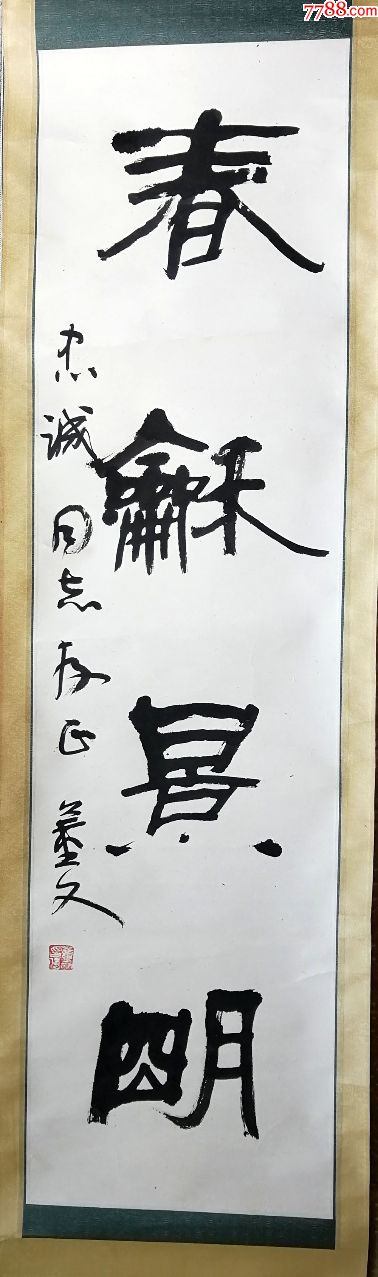 7788.com
春龢景明
忠诚同志存正 董文